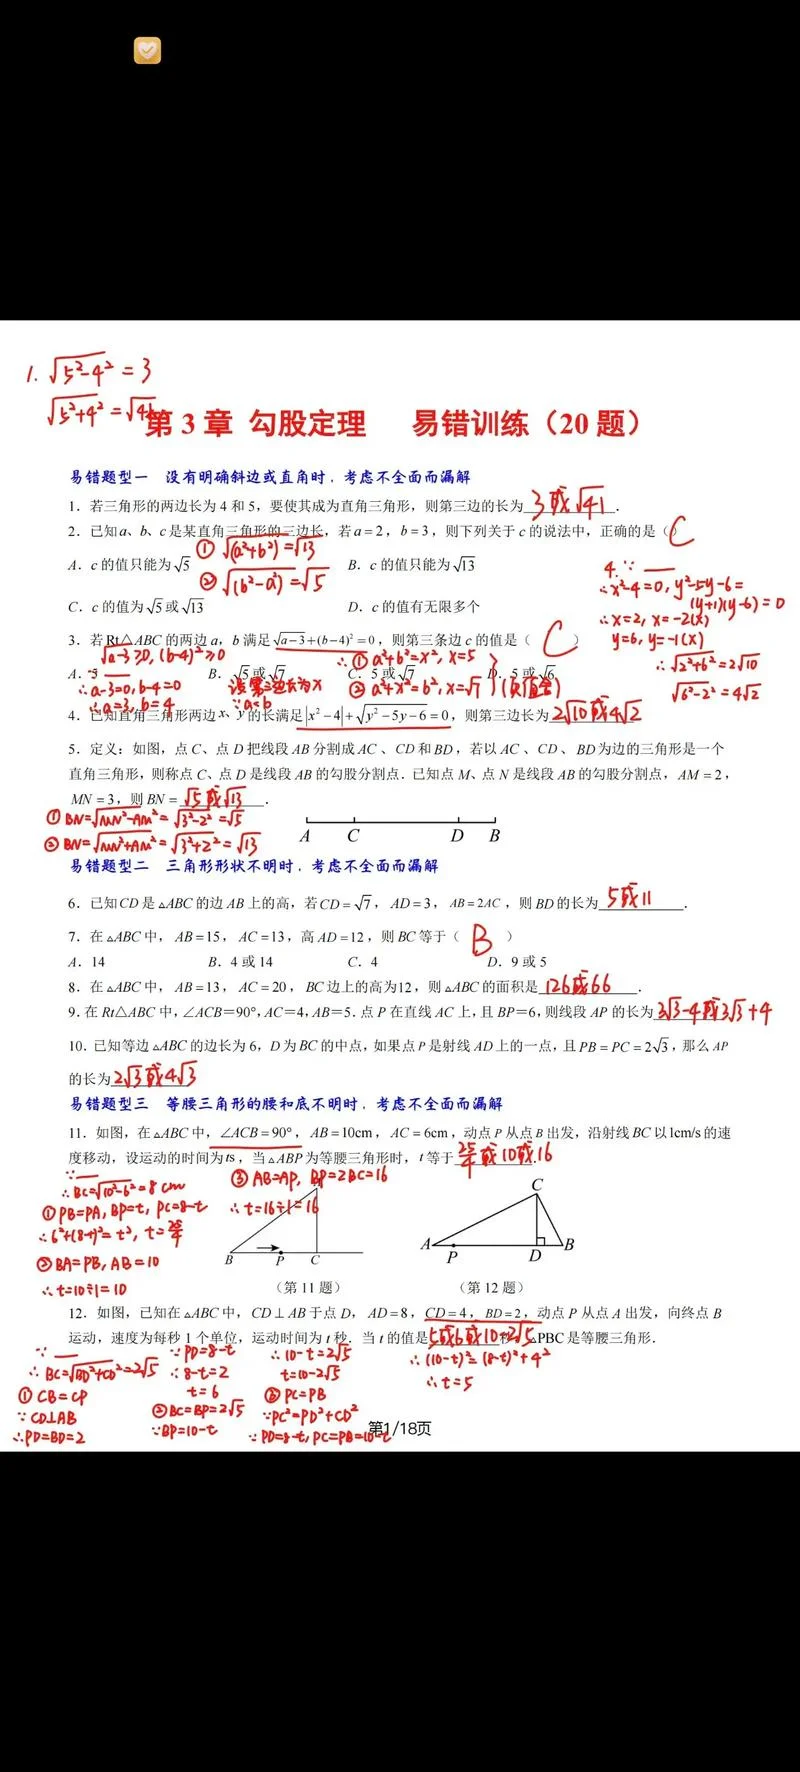 1. √5²-4² = 3
√5²+4² = √41
第 3 章 勾股定理 易错训练（20 题）
易错题型一 没有明确斜边或直角时，考虑不全面而漏解
1．若三角形的两边长为 4 和 5，要使其成为直角三角形，则第三边的长为 3或√41 ．
2．已知a、b、c是某直角三角形的三边长，若a=2，b=3，则下列关于c的说法中，正确的是（ C
① √(a²+b²)=√13
A．c 的值只能为√5
B．c 的值只能为√13
② √(b²-a²)=√5
C．c 的值为√5或√13
D．c 的值有无限多个
4. ∵
∴x²-4=0, y²-5y-6=
(y+1)(y-6)=0
∴x=2, x=-2(X)
y=6, y=-1(X)
∴√2²+6²=2√10
√6²-2²=4√2
3．若Rt△ABC 的两边a，b 满足√a-3+(b-4)²=0，则第三条边 c 的值是（ C ）
√a-3≥0, (b-4)²≥0
∴① a²+b²=x², x=5
A．5
B．√5或√7
C．5 或√7
D．5 或√6
∴a-3=0, b-4=0
设第三边长为x
② a²+x²=b², x=√7
∴a=3, b=4
∵a<b
4．已知直角三角形两边x、y的长满足|x²-4|+√y²-5y-6=0，则第三边长为 2√10或4√2
5．定义：如图，点 C、点 D 把线段 AB 分割成 AC 、CD 和 BD，若以 AC 、CD、BD 为边的三角形是一个
直角三角形，则称点 C、点 D 是线段 AB 的勾股分割点．已知点 M、点 N 是线段 AB 的勾股分割点，AM = 2，
MN = 3，则 BN = √5或√13 ．
① BN=√MN²-AM²=√3²-2²=√5
② BN=√MN²+AM²=√3²+2²=√13
A C D B
易错题型二 三角形形状不明时，考虑不全面而漏解
6．已知CD 是 △ABC 的边 AB 上的高，若CD=√7，AD=3，AB=2AC，则 BD 的长为 5或11 ．
7．在 △ABC 中，AB=15，AC=13，高 AD=12，则 BC 等于（ B ）
A．14
B．4 或 14
C．4
D．9 或 5
8．在 △ABC 中，AB=13，AC=20，BC 边上的高为12，则 △ABC 的面积是 126或66 ．
9．在 Rt△ABC 中，∠ACB=90°，AC=4，AB=5．点 P 在直线 AC 上，且 BP=6，则线段 AP 的长为 3√3-4或3√3+4
10．已知等边 △ABC 的边长为 6，D 为 BC 的中点，如果点 P 是射线 AD 上的一点，且 PB=PC=2√3，那么 AP
的长为 2√3或4√3
易错题型三 等腰三角形的腰和底不明时，考虑不全面而漏解
11．如图，在 △ABC 中，∠ACB=90°，AB=10cm，AC=6cm，动点 P 从点 B 出发，沿射线 BC 以1cm/s 的速
度移动，设运动的时间为ts，当 △ABP 为等腰三角形时，t 等于 25/4或10或16
∵
∴BC=√10²-6²=8 cm
① PB=PA, BP=t, PC=8-t
∴6²+(8-t)²=t², t=25/4
② BA=PB, AB=10
∴t=10÷1=10
③ AB=AP, BP=2BC=16
∴t=16÷1=16
B P C
C
A P D B
（第 11 题）
（第 12 题）
12．如图，已知在 △ABC 中，CD⊥AB 于点 D，AD=8，CD=4，BD=2，动点 P 从点 A 出发，向终点 B
运动，速度为每秒 1 个单位，运动时间为 t 秒．当 t 的值是 5或6或10-2√5 秒 △PBC 是等腰三角形．
∵
∴BC=√BD²+CD²=2√5
① CB=CP
∵CD⊥AB
∴PD=BD=2
∵PD=8-t
∴8-t=2
t=6
② BC=BP=2√5
∵BP=10-t
∴10-t=2√5
t=10-2√5
③ PC=PB
∵PC²=PD²+CD²
∵PD=8-t, PC=PB=10-t
∴(10-t)²=(8-t)²+4²
∴t=5
第1/18页